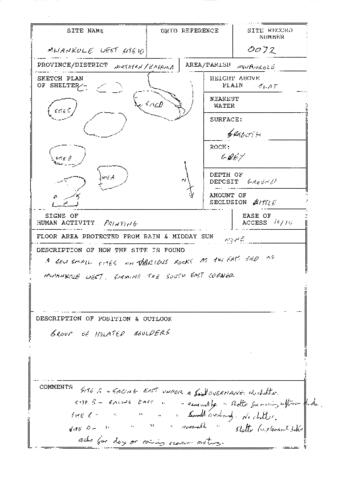 SITE NAME
GRID REFERENCE
SITE RECORD NUMBER
MWANKOLE WEST SITE 10
0072
PROVINCE/DISTRICT NORTHERN/KASAMA
AREA/PARISH MWANKOLE
SKETCH PLAN OF SHELTER
HEIGHT ABOVE PLAIN FLAT
NEAREST WATER
SURFACE:
SMOOTH
ROCK:
GREY
DEPTH OF DEPOSIT GROUND
AMOUNT OF SECLUSION LITTLE
SITE C
SITE D
SITE B
SITE A
N
SIGNS OF HUMAN ACTIVITY PAINTING
EASE OF ACCESS 10/10
FLOOR AREA PROTECTED FROM RAIN & MIDDAY SUN NONE
DESCRIPTION OF HOW THE SITE IS FOUND
A FEW SMALL SITES ON VARIOUS ROCKS AT THE FAR END OF
MWANKOLE WEST. FORMING THE SOUTH EAST CORNER
DESCRIPTION OF POSITION & OUTLOOK
GROUP OF ISOLATED BOULDERS
COMMENTS SITE A - FACING EAST UNDER A SMALL OVERHANG. No shelter.
SITE B - FACING EAST " -
SITE C - " " " Small overhang. No shelter.
SITE D - " " "